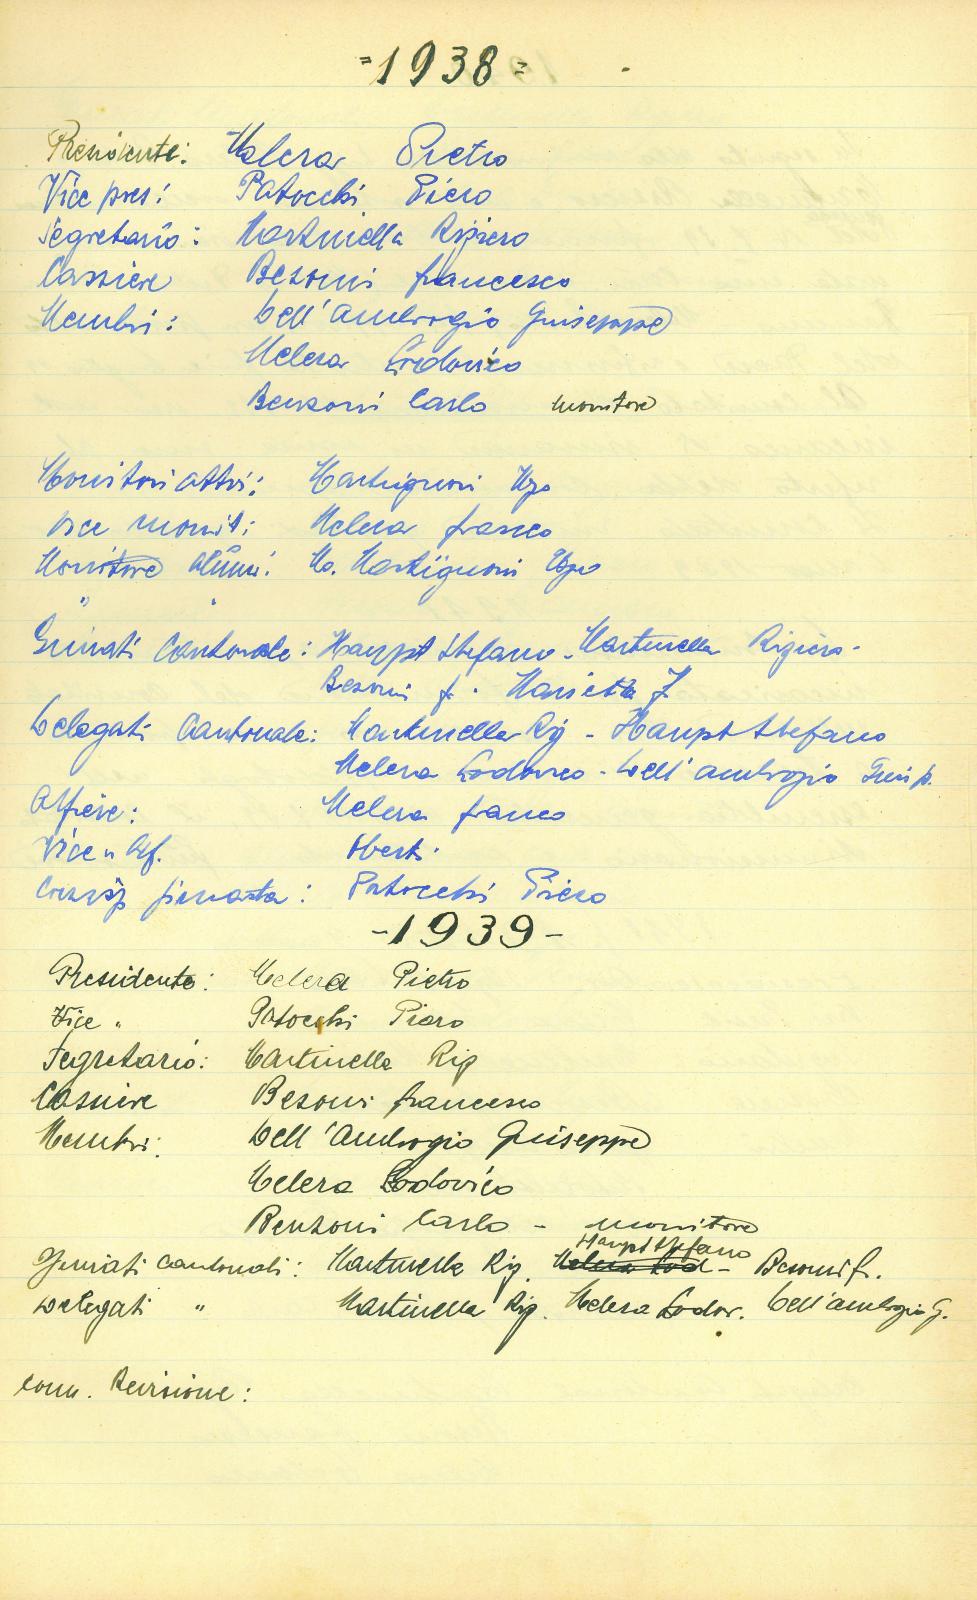 =1938=
Presidente: Melera Pietro
Vice pres: Patocchi Piero
Segretario: Martinella Rigiero
Cassiere Besomi francesco
Membri: Dell'Ambrogio Guiseppe
Melera Lodovico
Benzoni Carlo monitore
Monitori attivi: Martignoni Ugo
vice monit: Melera franco
Monitore alunni: Mo. Martignoni Ugo
" "
Giurati Cantonale: Haupt Stefano - Martinella Rigiero -
Besomi f. - Marietta J.
Delegati Cantonale: Martinella Rig - Haupt Stefano
Melera Lodovico - Dell'ambrogio Guisp.
Alfiere: Melera franco
Vice " Alf. Oberti
ginnasta: Patocchi Piero
-1939-
Presidente: Melera Pietro
Vice " Patocchi Piero
Segretario: Martinella Rig
Cassiere Besomi francesco
Membri: Dell'Ambrogio Guiseppe
Melera Lodovico
Benzoni Carlo - monitore
Haupt Stefano
Giurati cantonali: Martinella Rig. Melera Lod - Besomi fr.
Delegati " Martinella Rig. Melera Lodov. Dell'ambrogio G.
Com. Revisione: